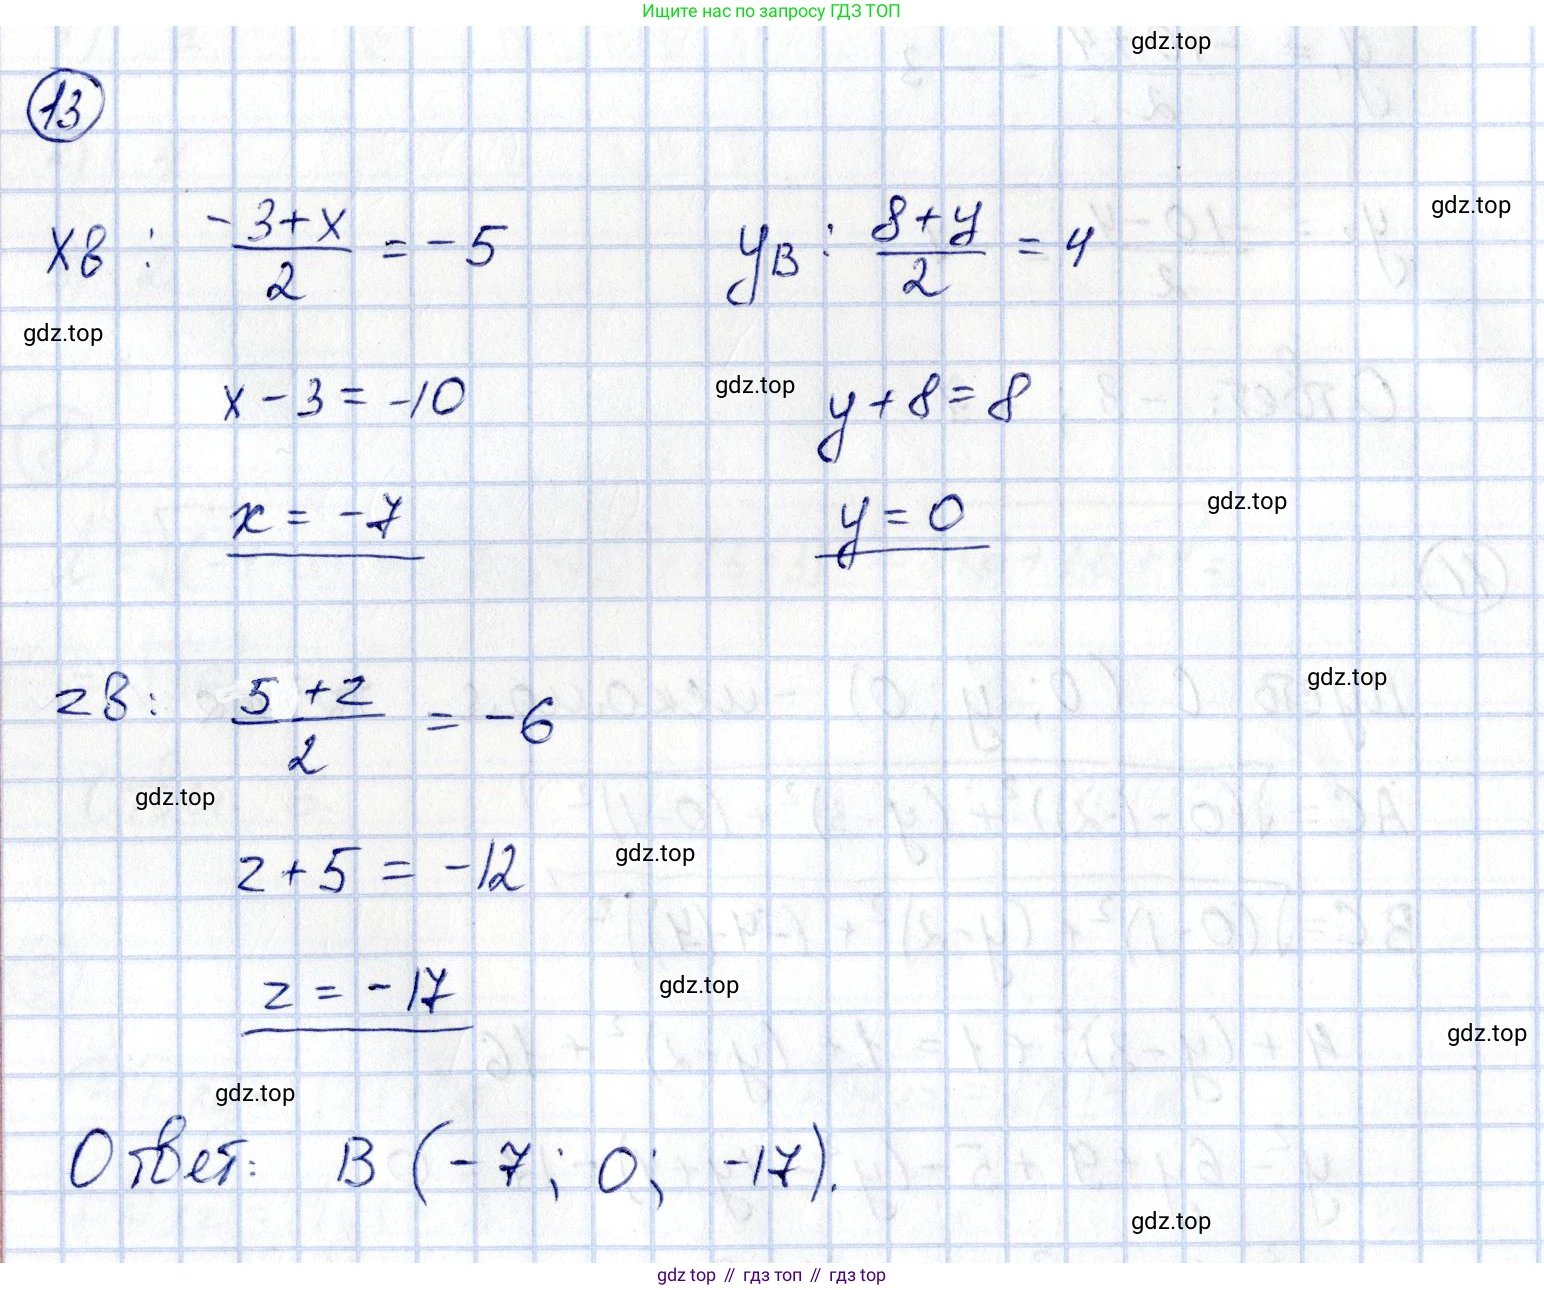 Ищите нас по запросу ГДЗ ТОП
gdz.top
13
gdz.top
xв : (-3+x)/2 = -5 yB : (8+y)/2 = 4
gdz.top
gdz.top
x - 3 = -10 y + 8 = 8
gdz.top
x = -7 y = 0
gdz.top
zB: (5+z)/2 = -6
gdz.top
gdz.top
z + 5 = -12
gdz.top
z = -17
gdz.top
gdz.top
Ответ: B (-7; 0; -17).
gdz.top
gdz top // гдз топ // гдз top